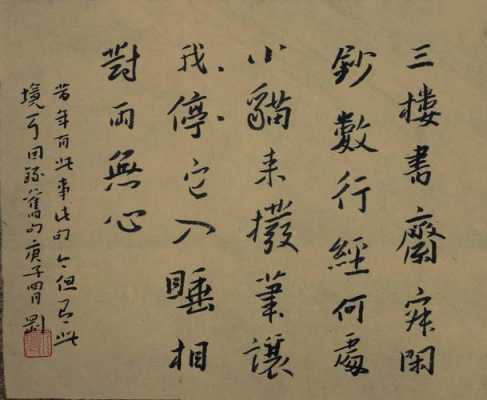 三樓書齋寂閑
鈔數行經何處
小貓來撥筆讓
我停它入睡相
對兩無心
昔年有此事此句今但有此
境耳因錄舊句庚子四月劉